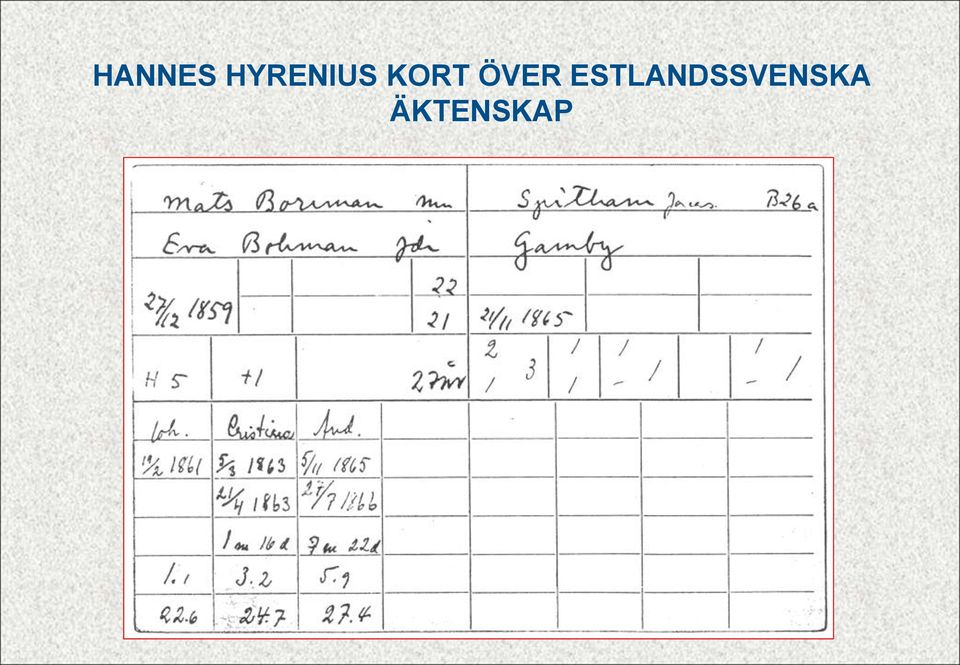 HANNES HYRENIUS KORT ÖVER ESTLANDSSVENSKA
ÄKTENSKAP
Mats Borrman Spitham B26a
Eva Bohman Gamby
22
27/12 1859 21 21/11 1865
2 3 1 1 1
H 5 +1 27 år 1 1 - 1 - 1
Joh. Cristina And.
19/2 1861 5/3 1863 5/11 1865
21/4 1863 27/7 1866
1 m 16 d 7 m 22 d
1.1 3.2 5.9
22.6 24.7 27.4